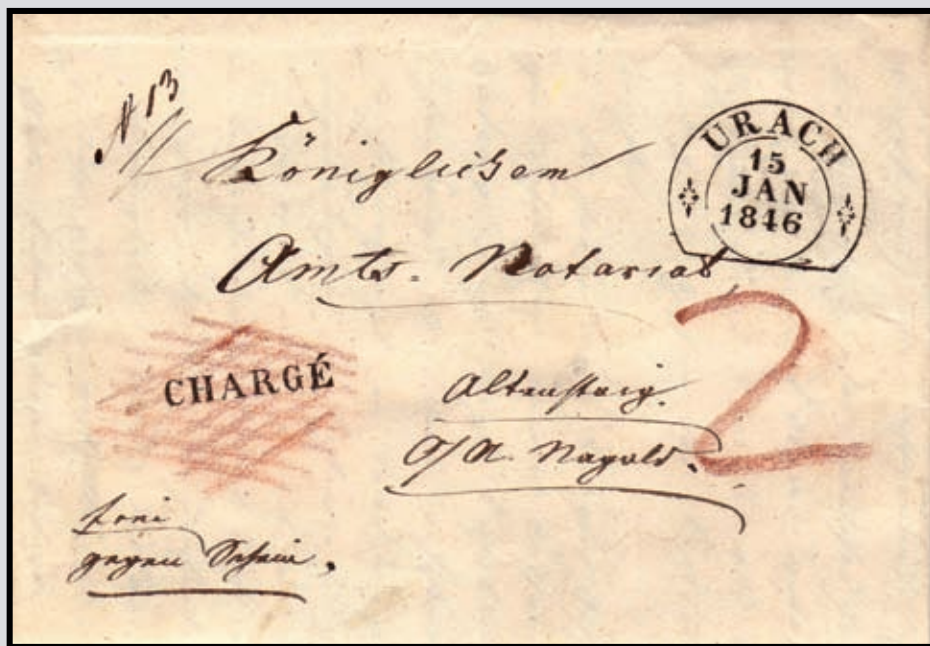 N 13
Königlichem
Amts-Notariat
URACH
15
JAN
1846
2
CHARGÉ
Altenstaig.
O/A. Nagold.
frei
gegen Schein.